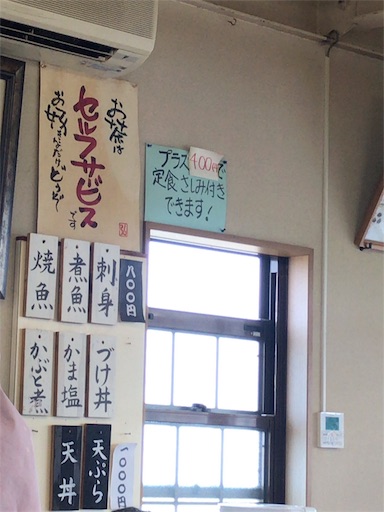 お茶は
セルフサービス
です
お好きなだけどうぞ〜
プラス400円で
定食さしみ付き
できます!
八〇〇円
刺身
煮魚
焼魚
づけ丼
かま塩
かぶと煮
一〇〇〇円
天ぷら
天丼